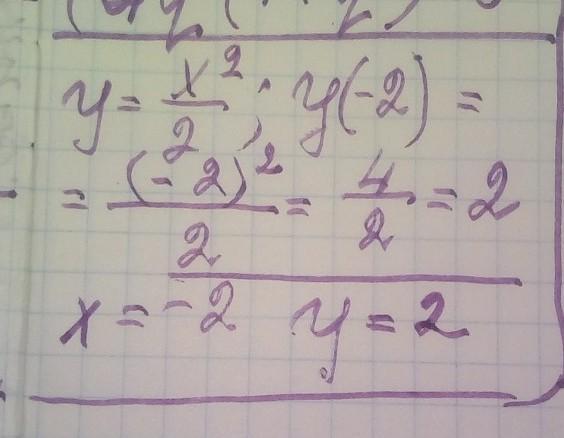 y = x²/2 ; y(-2) =
= (-2)²/2 = 4/2 = 2
x = -2 y = 2